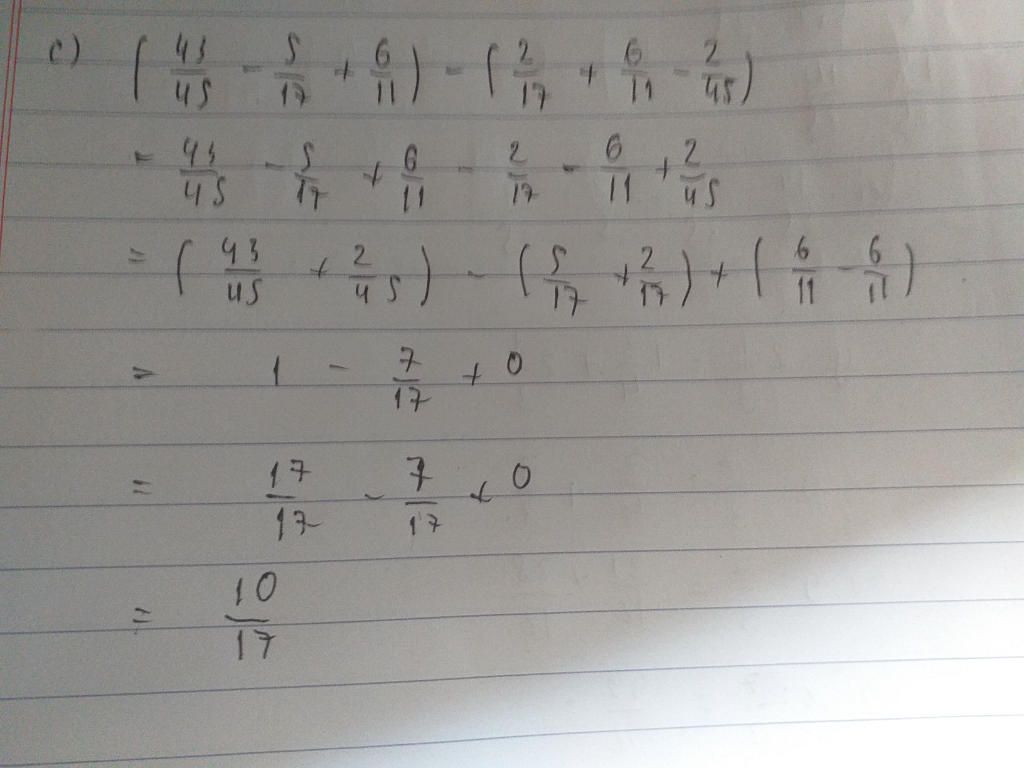 c) (43/45 - 5/17 + 6/11) - (2/17 + 6/11 - 2/45)
= 43/45 - 5/17 + 6/11 - 2/17 - 6/11 + 2/45
= (43/45 + 2/45) - (5/17 + 2/17) + (6/11 - 6/11)
= 1 - 7/17 + 0
= 17/17 - 7/17 + 0
= 10/17